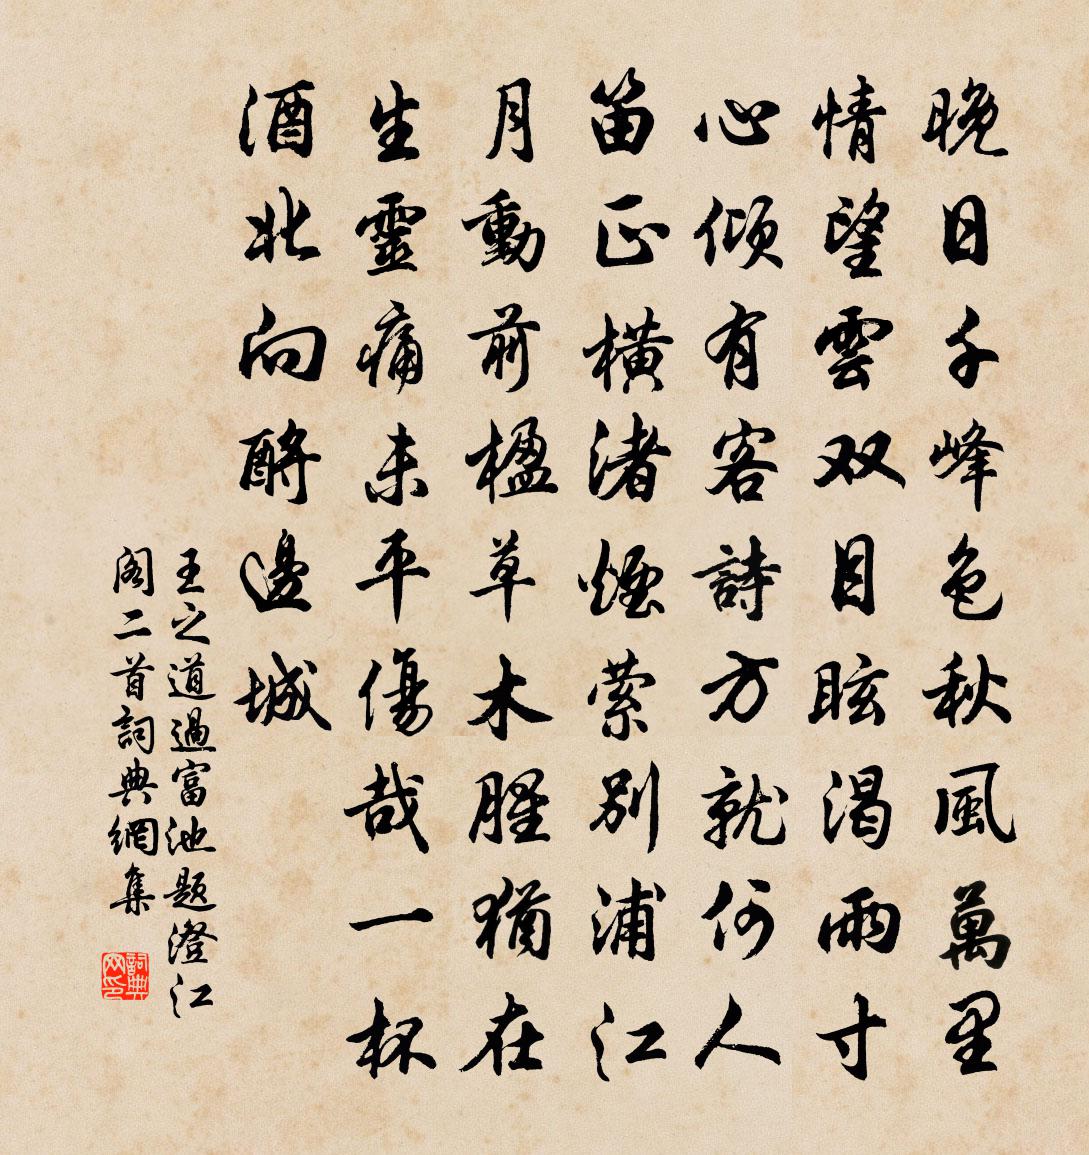 晚日千峰色秋風萬里
情望雲双目眩渴雨寸
心傾有客詩方就何人
笛正橫渚煙縈別浦江
月動前楹草木腥猶在
生靈痛未平傷哉一杯
酒北向酹邊城
王之道過富池題澄江
閣二首詞典網集
詞典
网印